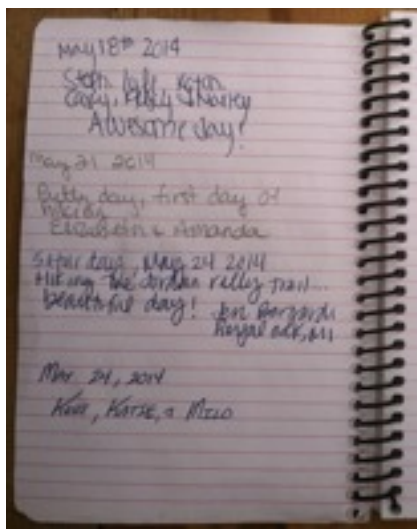 May 18th 2014
Steph,
Casey, & Harley
Awesome day!
May 21 2014
day, first day of
Elizabeth & Amanda
Saturday, May 24 2014
Hiking the Jordan valley trail...
beautiful day! Jen
Royal Oak, MI
May 24, 2014
Kurt, Katie, & Milo